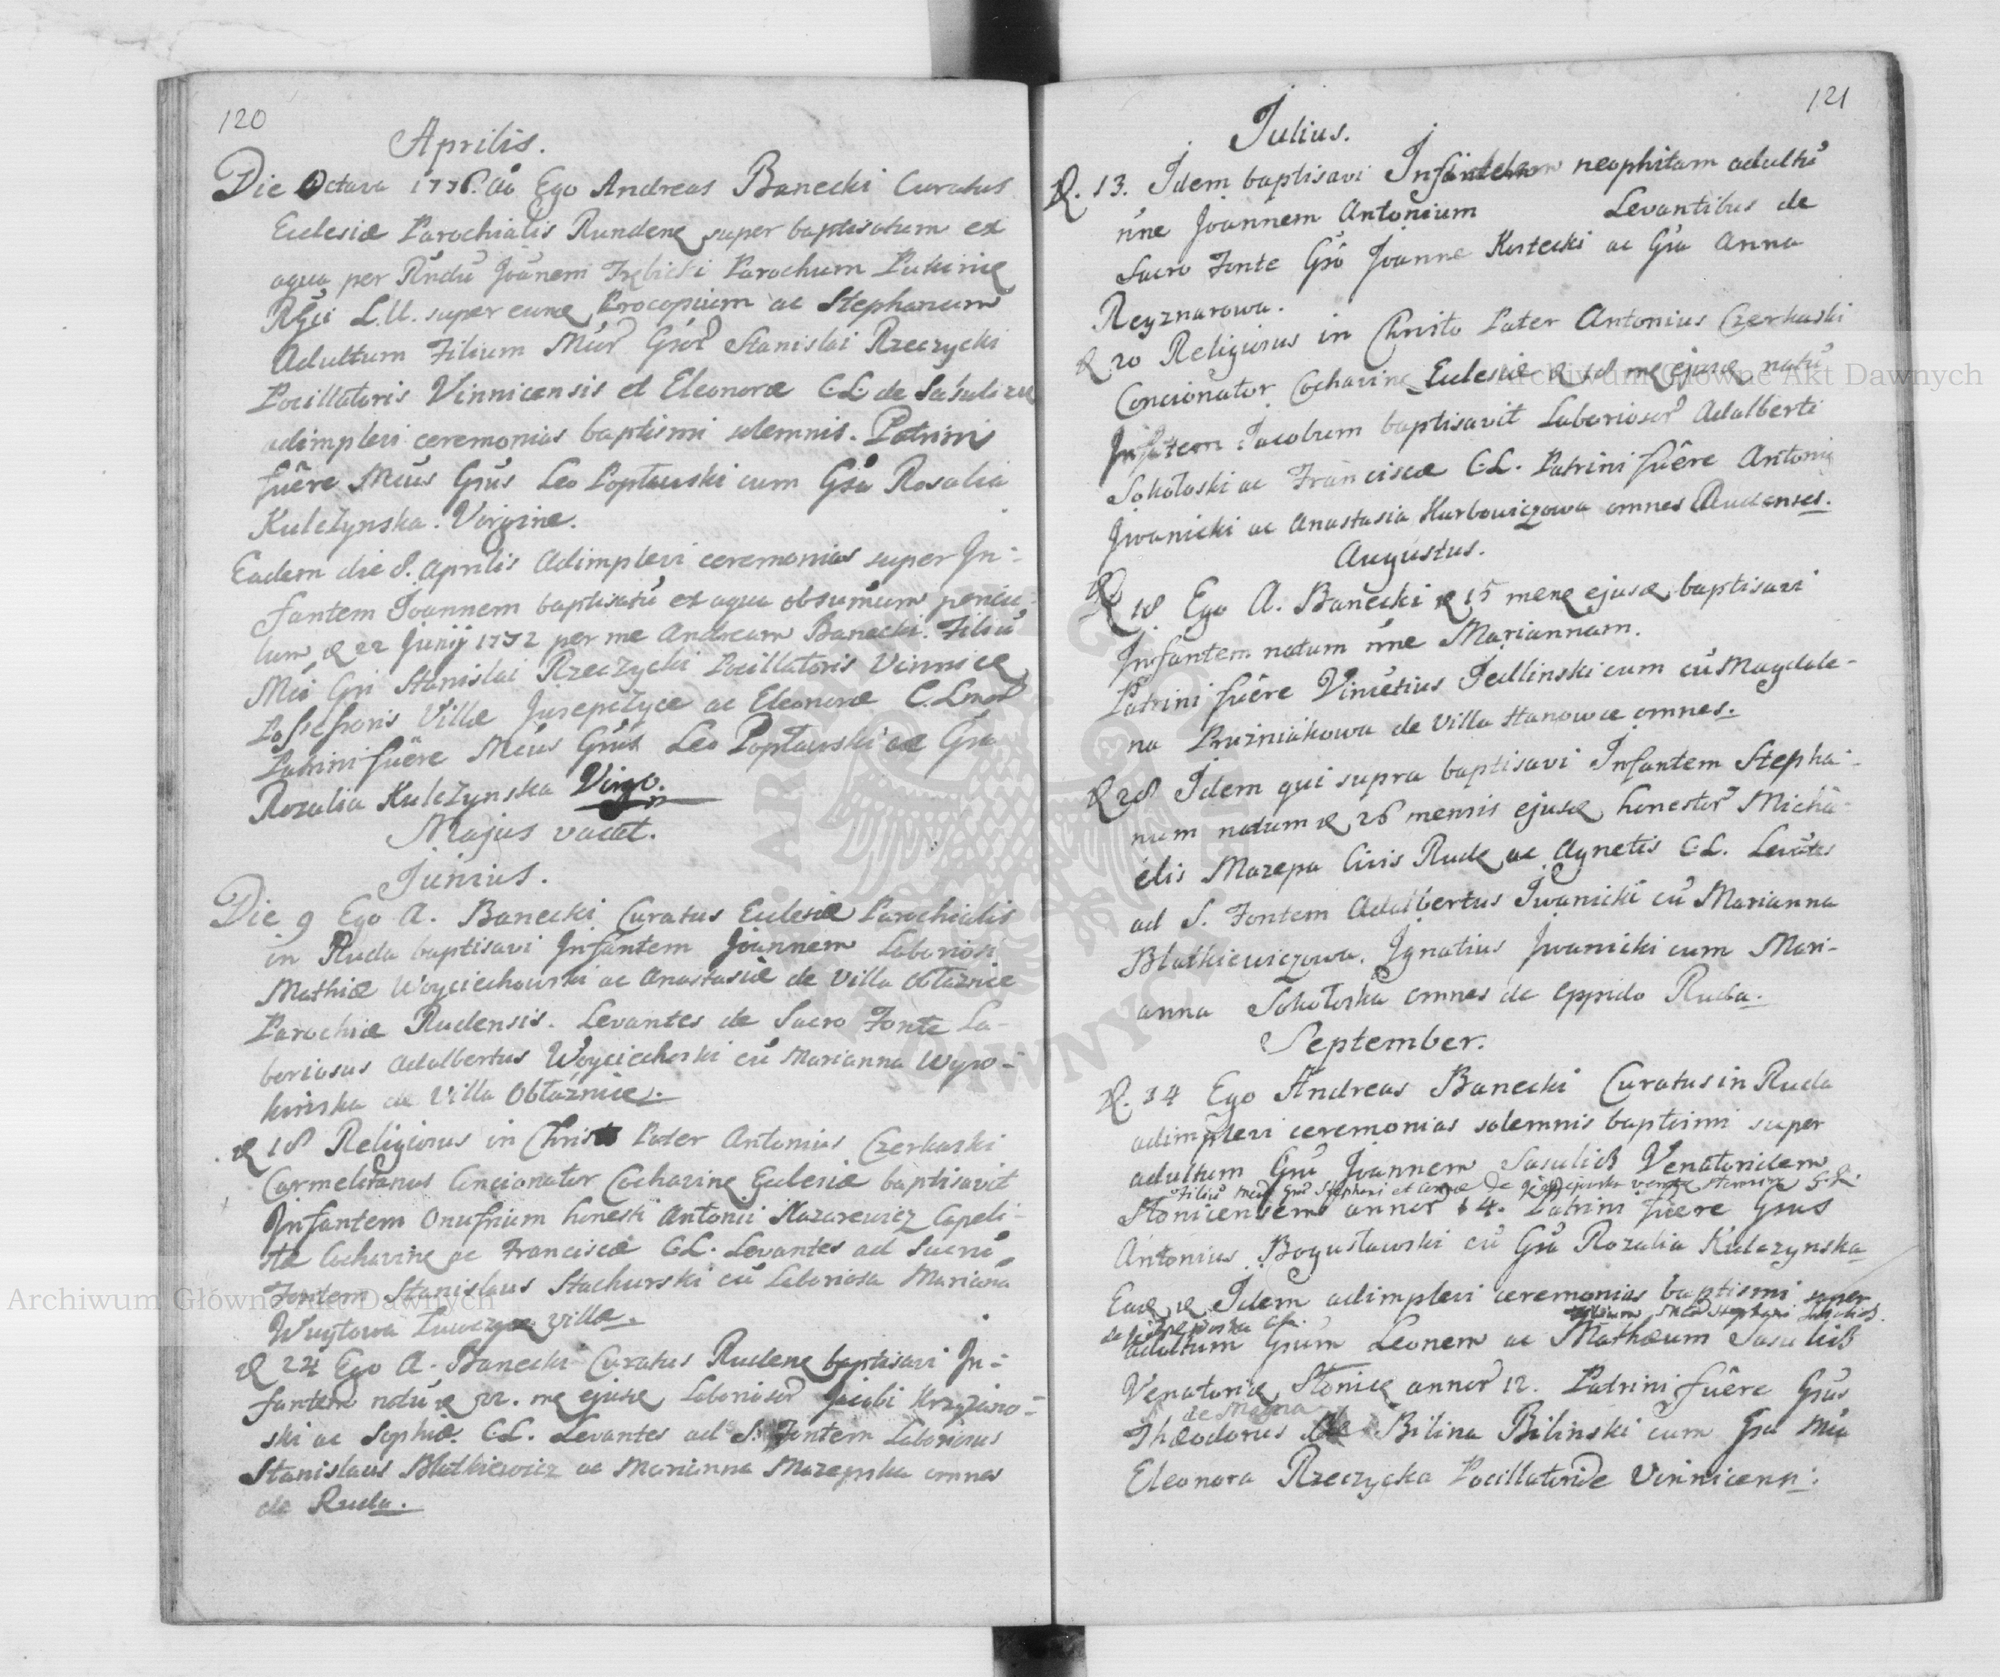 120
Aprilis.
Die Octava 1776. Ao Ego Andreas Banecki Curatus
Eclesiæ Parochialis Rudenę super baptisatum ex
aqua per Rndu Joanem Parochum
L.U. super Procopium ac Stephanum
Adultum Filium Stanislai Rzeczycki
Pocillatoris Vinnicensis et Eleonoræ C.L. de
adimplevi ceremonias baptismi solemnis. Patrini
fuêre Gnus Leo Popławski cum Gsa Rosalia
Kulczynska. Virgine.
Eadem die 8. Aprilis Adimplevi ceremonias super In-
fantem Joannem baptisatū ex aqua ob sumum pericu-
lum 22 Junij 1772 per me Andream Banecki. Filiū
Gsi Stanislai Rzeczycki Pocillatoris Vinnicę
Possessoris Villæ ac Eleonoræ
Patrini fuêre Gnus Leo Popławski ac Gsa
Rozalia Kulczynska Virgo.
Majus vacat.
Junius.
Die 9 Ego A. Banecki Curatus Eclesiæ Parochialis
in Ruda baptisavi Infantem Joannem Laboriosi
Mathiæ Woyciechowski ac Anastasiæ de Villa Obłaznice
Parochiæ Rudensis. Levantes de Sacro Fonte La-
boriosus Adalbertus Woyciechoski cū Marianna Wyso-
kinska de Villa Obłaźnice.
18 Religiosus in Christo Pater Antonius Czerkaski
Carmelitanus Concionator Cochavinę Eclesiæ baptisavit
Infantem Onufrium honesti Antonii Nazarewicz Capeli-
tæ Cochavinę ac Franciscæ C.L. Levantes ad Sacrū
Fontem Stanislaus Stachurski cū Laboriosa Marianā
Wuytowa villæ.
24 Ego A. Banecki Curatus Rudenę baptisavi In-
fantem natū 22. me ejusę Jacobi Krzyzano-
ski ac Sophiæ C.L. Levantes ad S. Fontem Laboriosus
Stanislaus Blatkiewicz ac Marianna Mazepska omnes
de Ruda.
121
Julius.
13. Idem baptisavi neophitam adultū
nne Joannem Antonium Levantibus de
Sacro Fonte Gso Joanne Kostecki ac Gsa Anna
Reyznarowa.
20 Religiosus in Christo Pater Antonius Czerkaski
Concionator Cochavinę Eclesiæ 18 me ejusę natū
Infatem Jacobum baptisavit Adalberti
Sokołoski ac Franciscæ C.L. Patrini fuêre Antoni
Iwanicki ac Anastasia Karbowiczowa omnes Rudenses.
Augustus.
18. Ego A. Banecki 15 menę ejusę baptisavi
Infantem natam nne Mariannam.
Patrini fuêre Vincētius Jedlinski cum cū Magdale-
na Pruzniakowa de Villa Hanowce omnes.
28 Idem qui supra baptisavi Infantem Stepha-
num natum 26 mensis ejusę Micha-
elis Mazepa Civis Rudę ac Agnetis C.L. Levātes
ad S. Fontem Adalbertus Iwanicki cū Marianna
Blatkiewiczowa. Ignatius Iwanicki cum Mari-
anna Sokołoska omnes de oppido Ruda.
September.
14 Ego Andreas Banecki Curatus in Ruda
adimplevi ceremonias solemnis baptismi super
adultum Gsū Joannem Venatoridem
Stephani et Annæ de
annor 14. Patrini fuere Gnus
Antonius Bogusławski cū Gsa Rozalia Kulczynska
Idem adimplevi ceremonias baptismi super
filium Stephani
adultum Gsum Leonem ac Mathæum
Venatoriæ annor 12. Patrini fuêre Gsus
de Magna
Theodorus Bilina Bilinski cum Gsa Mia
Eleonora Rzeczycka Pocillatoride Vinnicensi.
Archiwum Główne Akt Dawnych
Archiwum Główne Akt Dawnych